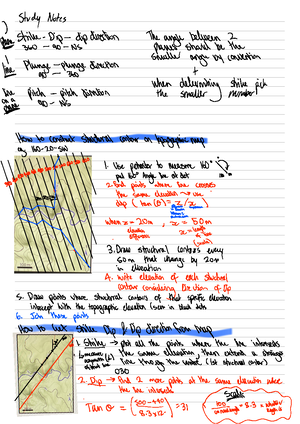 Study Notes
Plane Strike - Dip - dip direction
360 - 90 - NS
The angle between 2
planes should be the
smaller angle by convention
+
when determining strike pick
the smaller number
line Plunge - plunge direction
90 - 360
line on a plane Pitch - pitch direction
90 - NS
How to construct structural contours on topographic map
eg 160-20-SW
1. Use protractor to measure 160°
put 160° angle line at dot
2. Find points where line crosses
the same elevation → use
dip (tan(θ) = z/x)
when z = 20m, x = 50m
3. Draw structural contours every
50m that change by 20m
in elevation
4. Write elevation of each structural
contour considering direction of dip
5. Draw points where structural contours of that specific elevation
intersect with the topographic elevation
6. Join those points
How to find strike, Dip & Dip direction from map
1. Strike → put all the points where the line intersects
the same elevation, then extend a straight
line through the under (1st structural contour)
030
2. Dip → Find 2 more points at the same elevation where
the line intersects
Tan θ = (500-440) / (8.3×12) = 31
Scale:
100 = 8.3